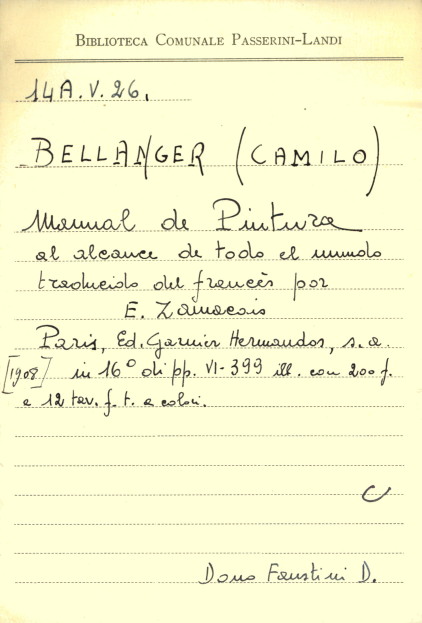 BIBLIOTECA COMUNALE PASSERINI-LANDI
14A.V.26.
BELLANGER (CAMILO)
Manual de Pintura
al alcance de todo el mundo
traducido del francès por
E. Zamacois
Paris, Ed. Garnier Hermandos, s.a.
[1908] in 16° di pp. VI-399 ill. con 200 f.
e 12 tav. f. t. a colori.
C
Dono Faustini D.